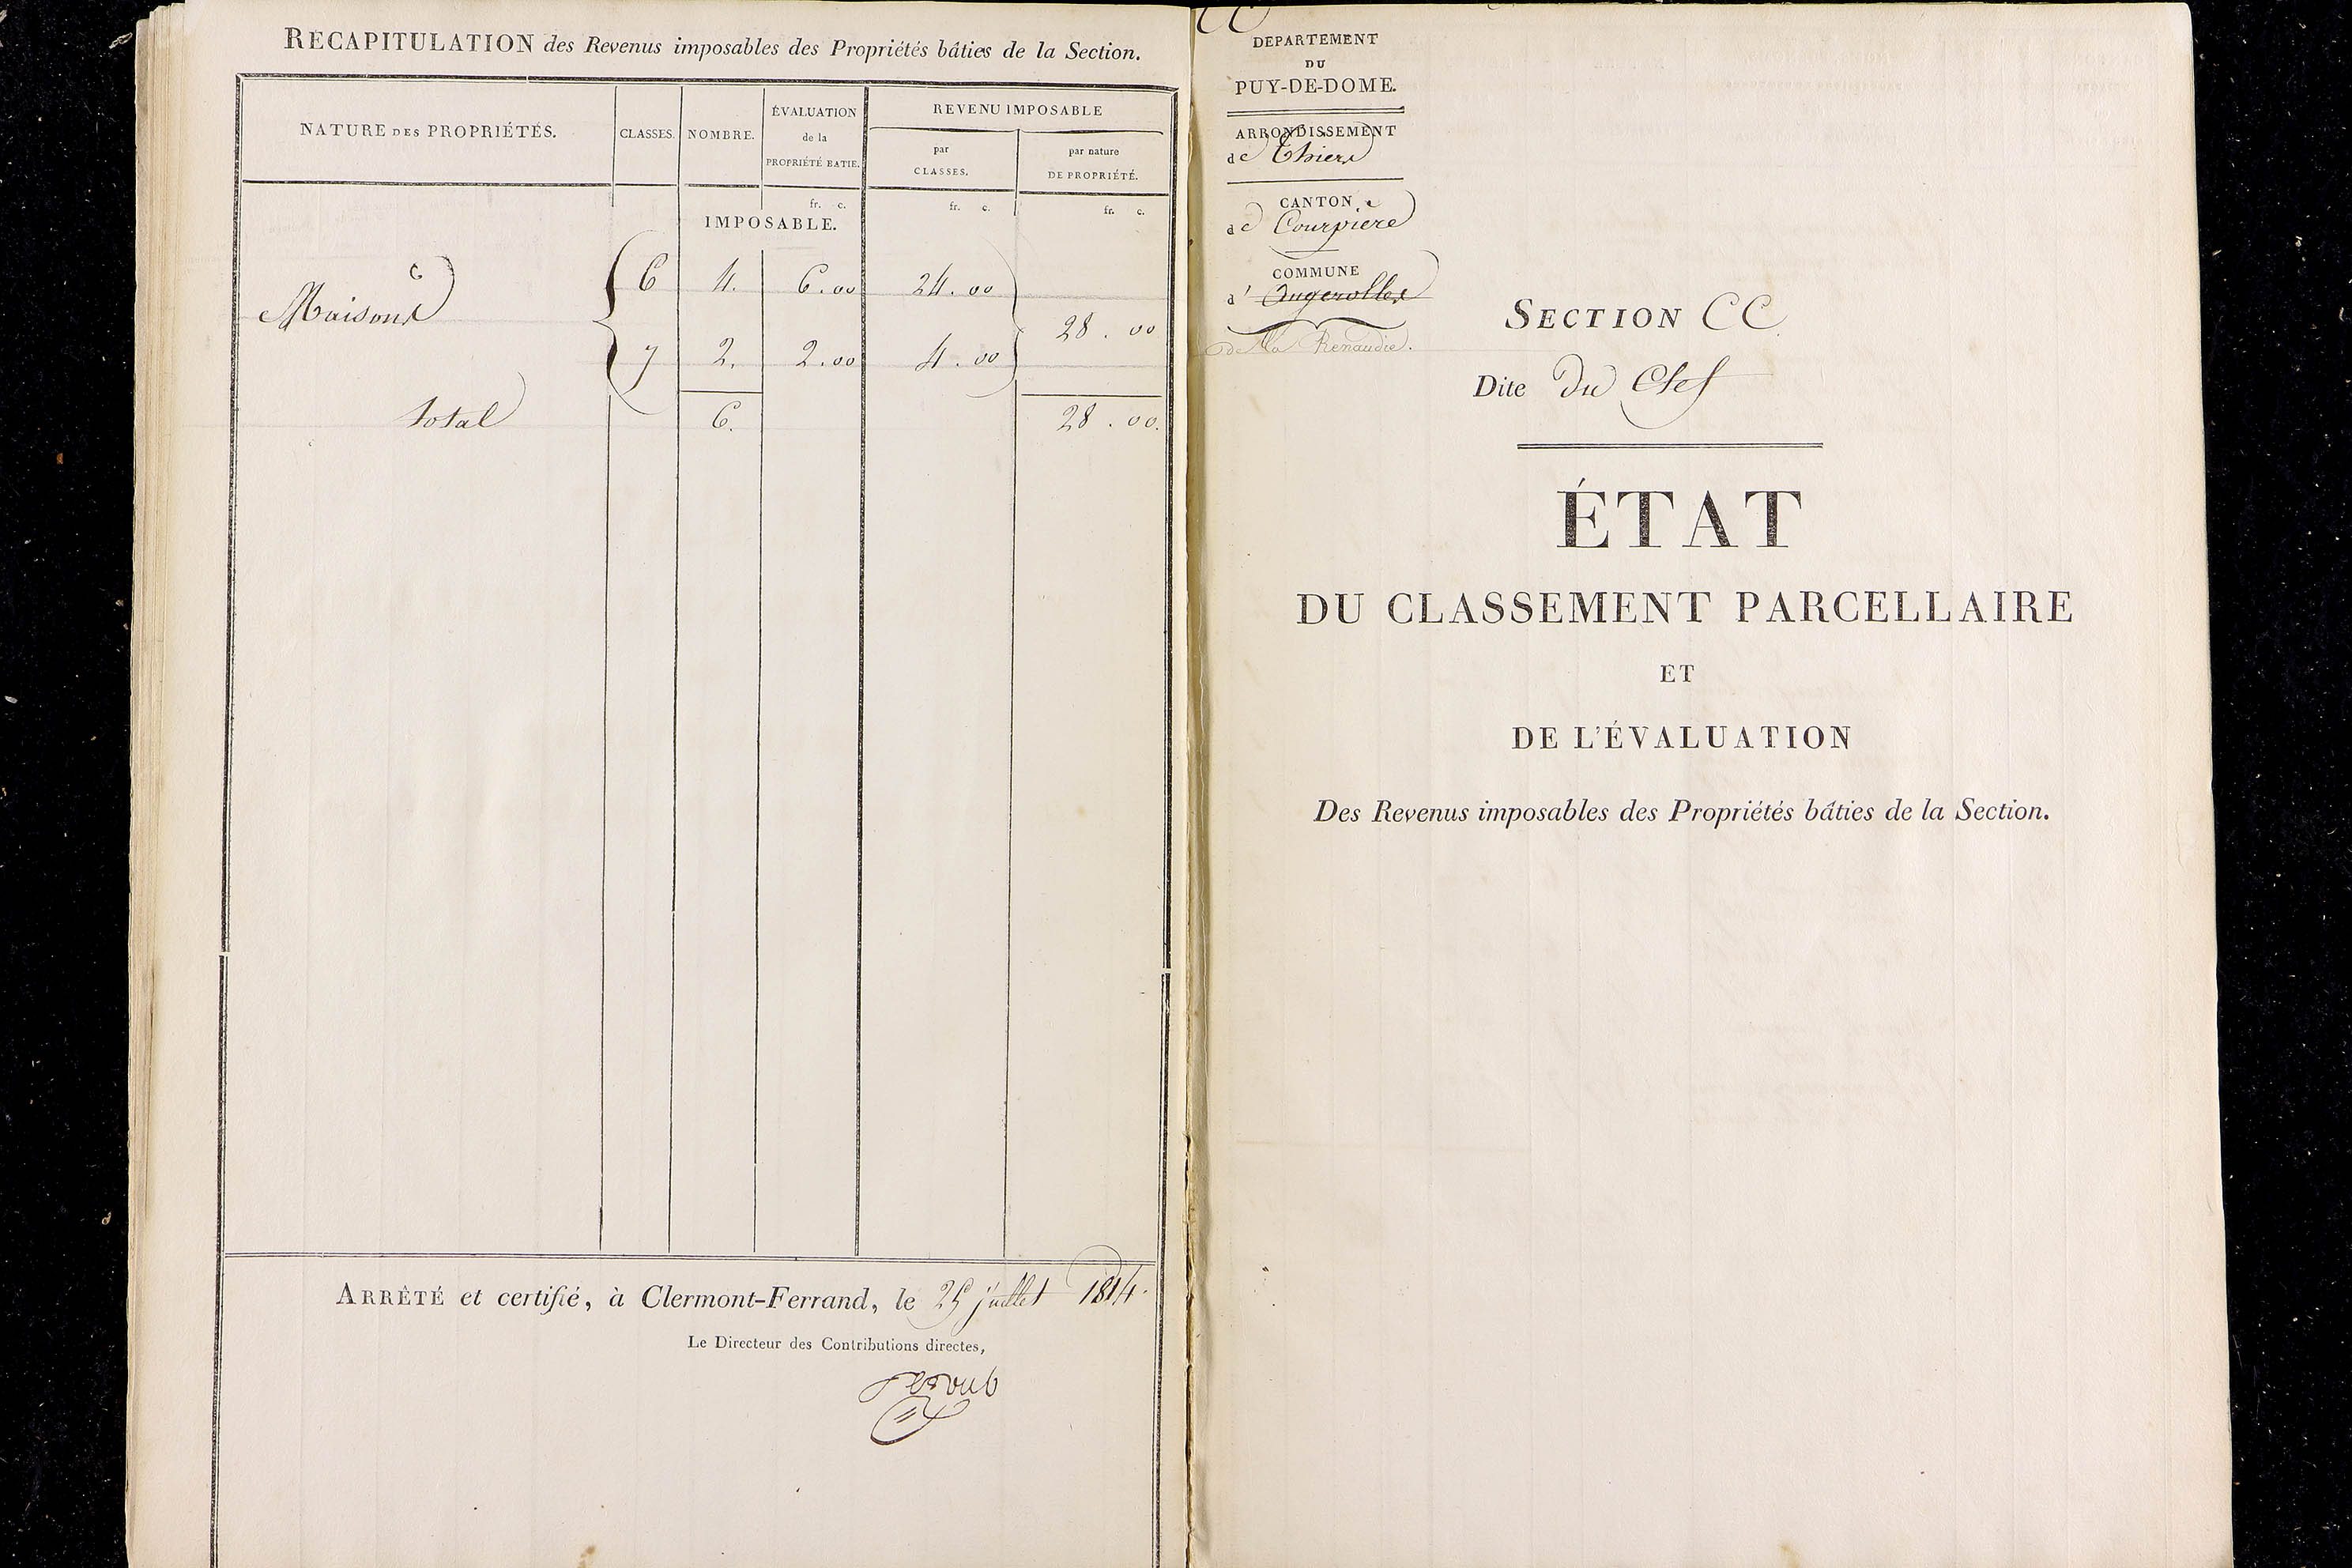 RÉCAPITULATION des Revenus imposables des Propriétés bâties de la Section.
NATURE DES PROPRIÉTÉS.
CLASSES.
NOMBRE.
ÉVALUATION
de la
PROPRIÉTÉ BATIE.
REVENU IMPOSABLE
par
CLASSES.
par nature
DE PROPRIÉTÉ.
fr. c.
fr. c.
fr. c.
IMPOSABLE.
Maisons
6 4. 6.00 24.00
28.00
7 2. 2.00 4.00
total 6. 28.00.
ARRÊTÉ et certifié, à Clermont-Ferrand, le 25 juillet 1814.
Le Directeur des Contributions directes,
CC
DEPARTEMENT
DU
PUY-DE-DOME.
ARRONDISSEMENT
de Thiers
CANTON
de Courpière
COMMUNE
d' Augerolles
de la Renaudie.
SECTION CC
Dite Du
ÉTAT
DU CLASSEMENT PARCELLAIRE
ET
DE L'ÉVALUATION
Des Revenus imposables des Propriétés bâties de la Section.